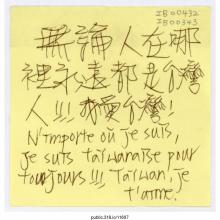 IB00432
IB00343
無論人在哪
裡永遠都是台灣
人!!! 我愛台灣!
N'importe où je suis,
je suis taïwanaise pour
toujours!!! Taïwan, je
t'aime.
public.318.io/11687